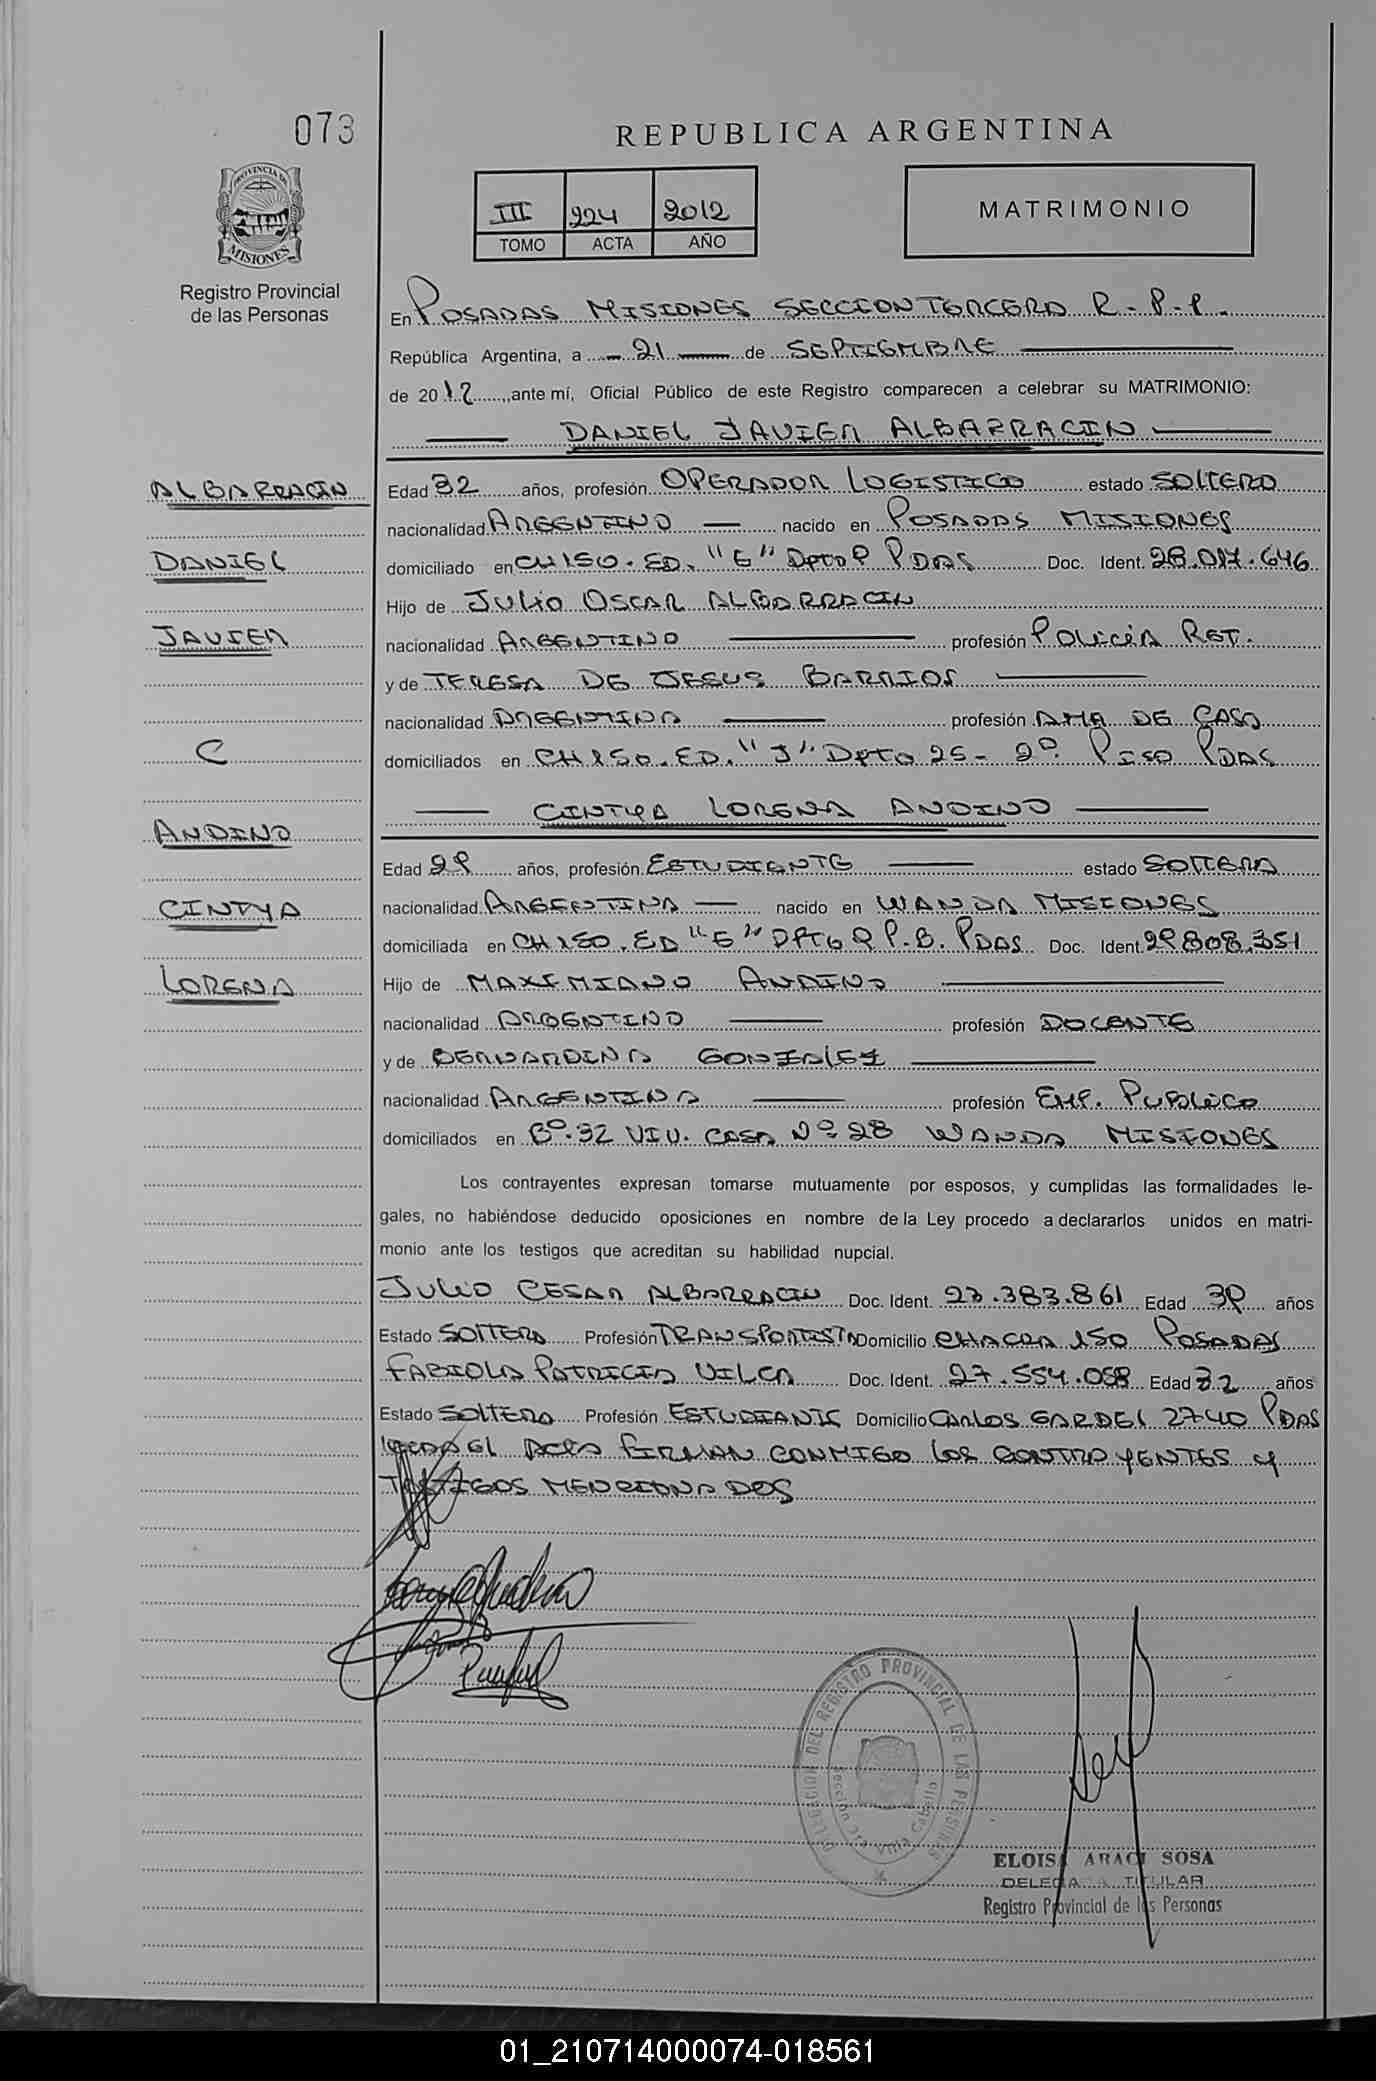 073
REPUBLICA ARGENTINA
PROVINCIA DE
MISIONES
Registro Provincial
de las Personas
III 224 2012
TOMO ACTA AÑO
MATRIMONIO
En POSADAS MISIONES SECCION TERCERA R.P.P.
República Argentina, a 21 de SEPTIEMBRE
de 2012, ante mí, Oficial Público de este Registro comparecen a celebrar su MATRIMONIO:
DANIEL JAVIER ALBARRACIN
ALBARRACIN
DANIEL
JAVIER
C
ANDINO
CINTYA
LORENA
Edad 32 años, profesión OPERADOR LOGISTICO estado SOLTERO
nacionalidad ARGENTINO nacido en POSADAS MISIONES
domiciliado en CH 150. ED. "E" Dpto PDAS Doc. Ident. 28.017.646
Hijo de JULIO OSCAR ALBARRACIN
nacionalidad ARGENTINO profesión POLICIA RET.
y de TERESA DE JESUS BARRIOS
nacionalidad ARGENTINA profesión AMA DE CASA
domiciliados en CH 150. ED. "J" DPTO 25 - 2º PISO PDAS
CINTYA LORENA ANDINO
Edad 29 años, profesión ESTUDIANTE estado SOLTERA
nacionalidad ARGENTINA nacido en WANDA MISIONES
domiciliada en CH 150. ED "E" DPTO P.B. PDAS Doc. Ident. 29.808.351
Hijo de MAXIMIANO ANDINO
nacionalidad ARGENTINO profesión DOCENTE
y de BERNARDINA GONZALEZ
nacionalidad ARGENTINA profesión EMP. PUBLICO
domiciliados en Bº. 32 VIV. CASA Nº 28 WANDA MISIONES
Los contrayentes expresan tomarse mutuamente por esposos, y cumplidas las formalidades le-
gales, no habiéndose deducido oposiciones en nombre de la Ley procedo a declararlos unidos en matri-
monio ante los testigos que acreditan su habilidad nupcial.
JULIO CESAR ALBARRACIN Doc. Ident. 23.383.861 Edad 39 años
Estado SOLTERO Profesión TRANSPORTISTA Domicilio CHACRA 150 POSADAS
FABIOLA PATRICIA VILCA Doc. Ident. 27.554.058 Edad 32 años
Estado SOLTERA Profesión ESTUDIANTE Domicilio CARLOS GARDEL 2740 PDAS
LEIDA EL ACTA FIRMAN CONMIGO LOS CONTRAYENTES Y
TESTIGOS MENCIONADOS
DELEGACION DEL REGISTRO PROVINCIAL DE LAS PERSONAS
Sección 3ra Villa Cabello
ELOISA ARACI SOSA
DELEGADA TITULAR
Registro Provincial de las Personas
01_210714000074-018561